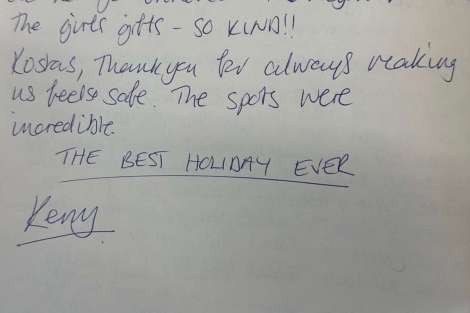 The girls gifts - SO KIND!!
Kostas, Thank you for always making
us feel so safe. The spots were
incredible.
THE BEST HOLIDAY EVER
Kerry